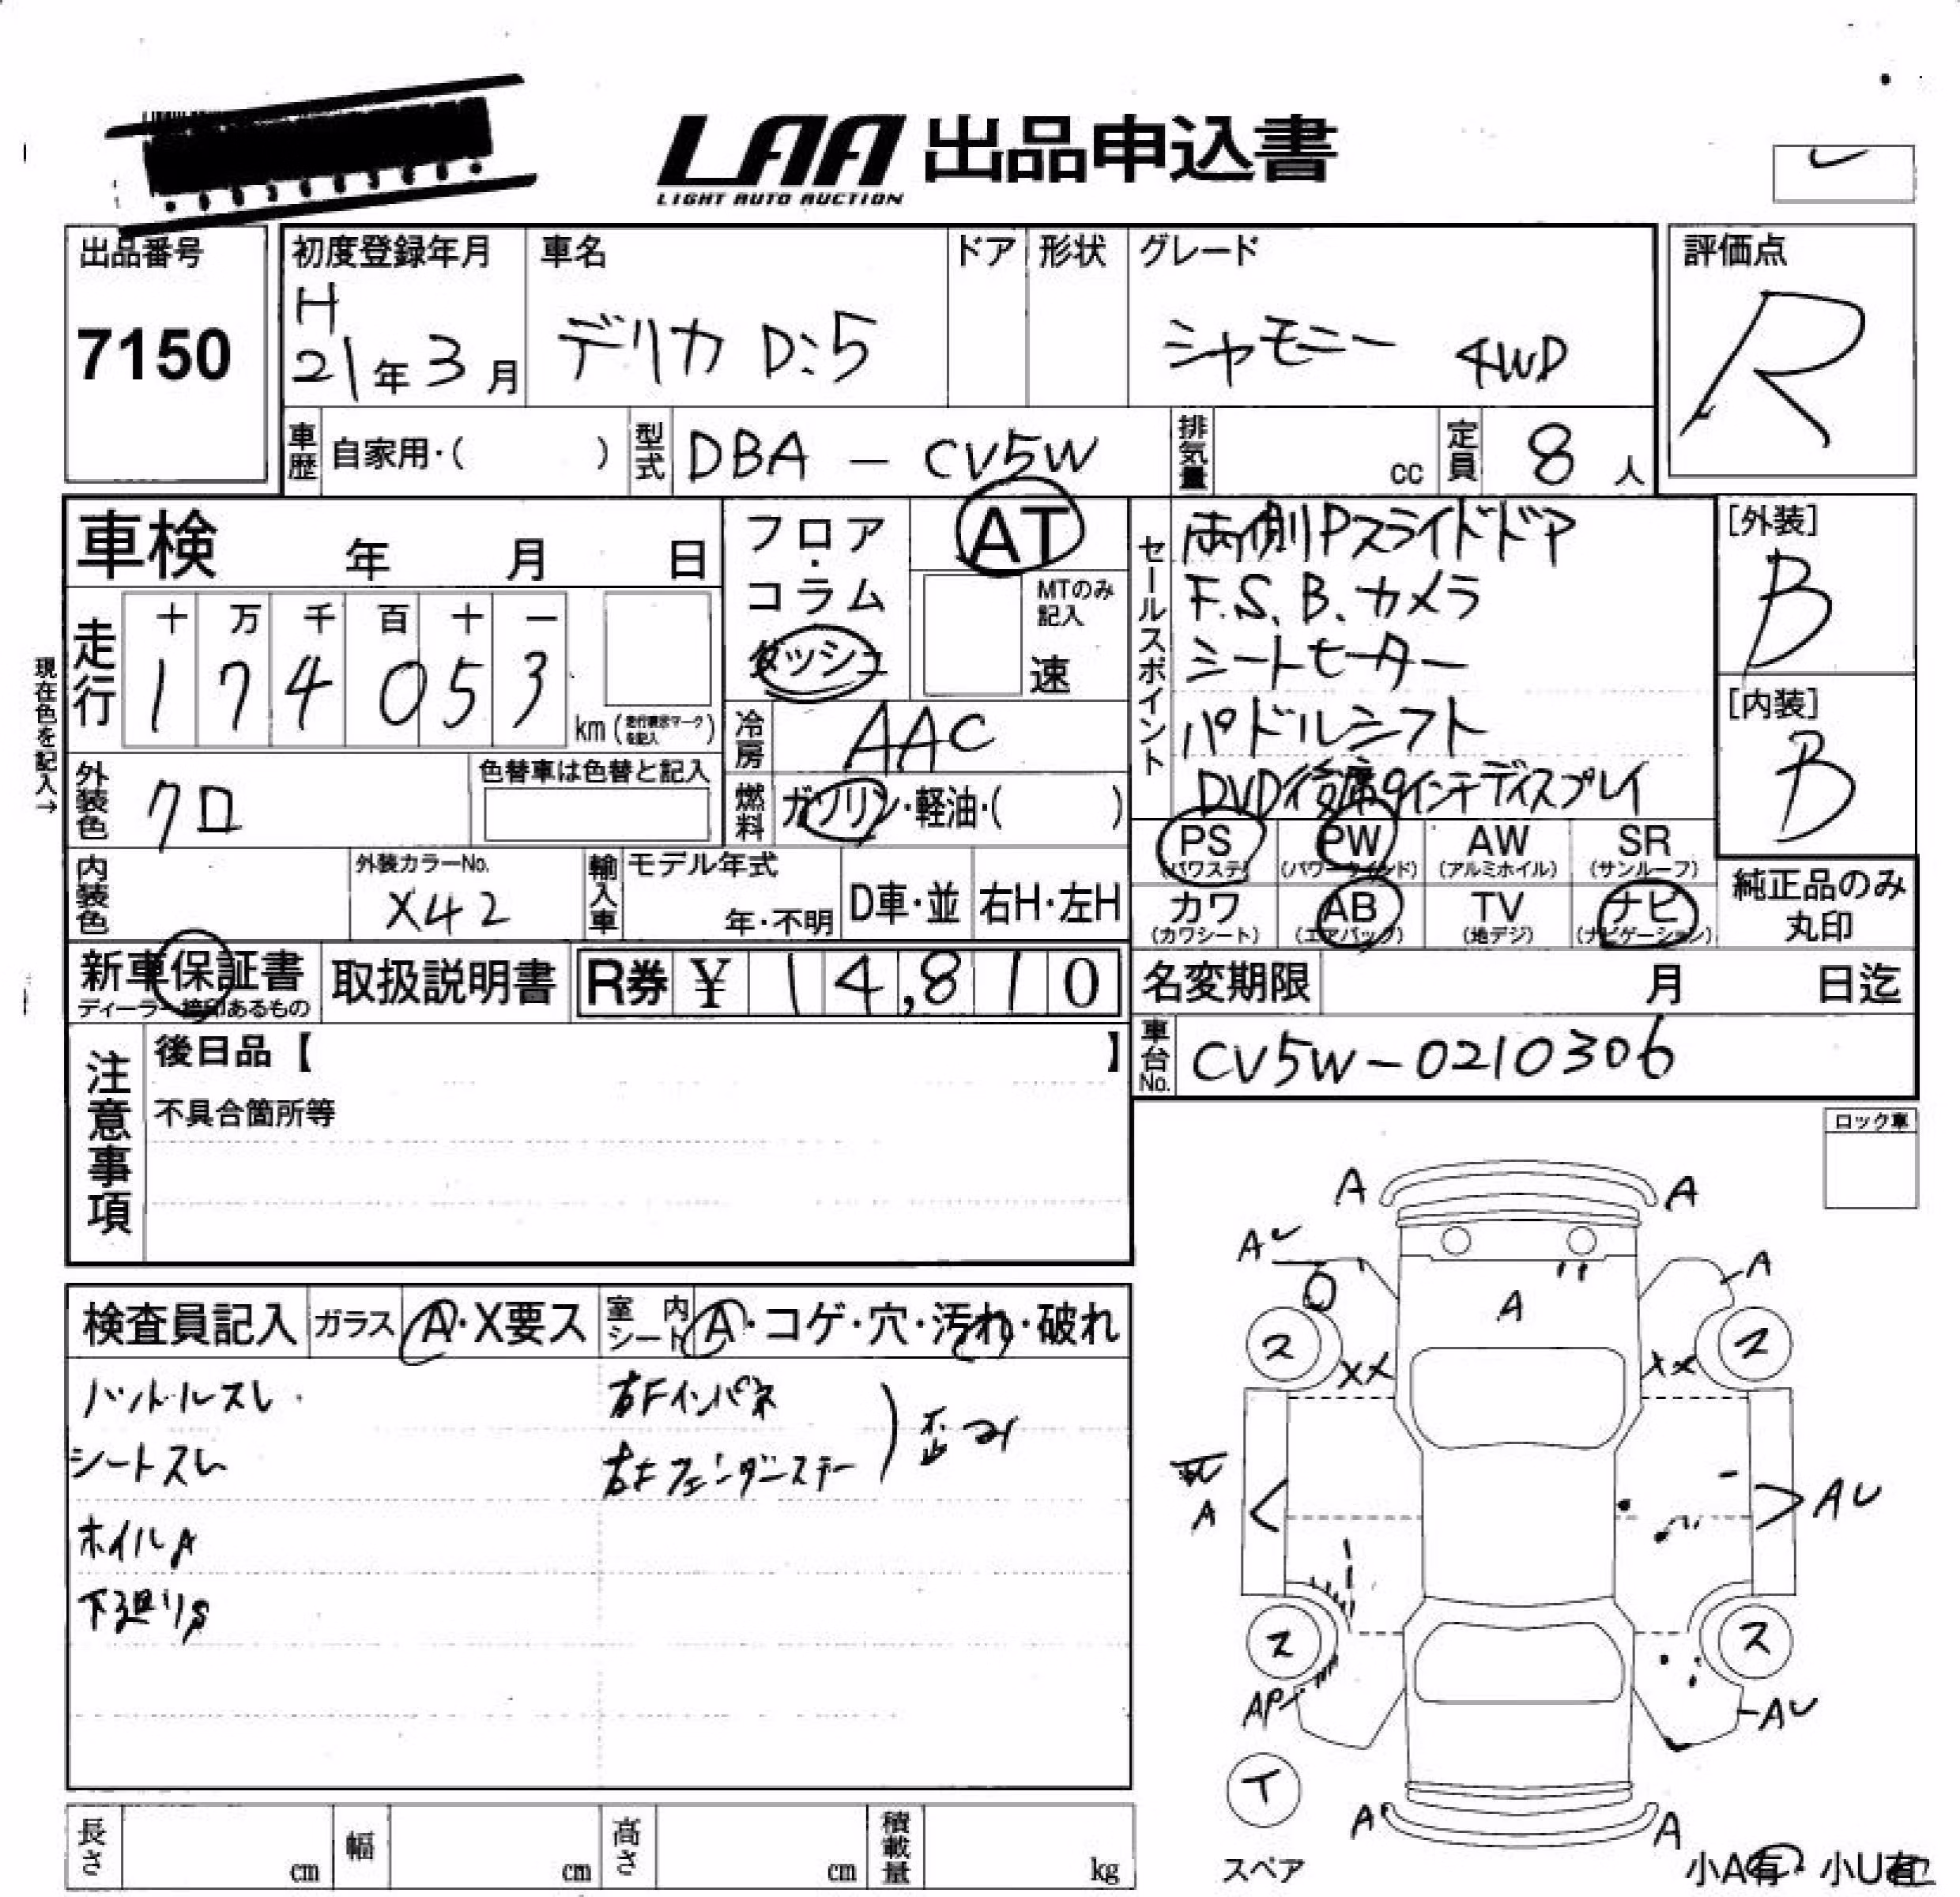 LAA 出品申込書
LIGHT AUTO AUCTION
出品番号
7150
初度登録年月
H
21年3月
車名
デリカ D:5
ドア
形状
グレード
シャモニー 4WD
評価点
R
車歴
自家用・( )
型式
DBA - CV5W
排気量
cc
定員
8人
車検 年 月 日
フロア・コラム
ダッシュ
AT
MTのみ記入
速
セールスポイント
両側Pスライドドア
F.S.B.カメラ
シートヒーター
パドルシフト
DVD後席9インチディスプレイ
[外装]
B
[内装]
B
現在色を記入→
走行
十 万 千 百 十 一
1 7 4 0 5 3
km (走行表示マークを記入)
冷房
AAC
外装色
クロ
色替車は色替と記入
燃料
ガソリン・軽油・( )
PS
(パワステ)
PW
(パワーウインド)
AW
(アルミホイル)
SR
(サンルーフ)
内装色
外装カラーNo.
X42
輸入車
モデル年式
年・不明
D車・並
右H・左H
カワ
(カワシート)
AB
(エアバッグ)
TV
(地デジ)
ナビ
(ナビゲーション)
純正品のみ
丸印
新車保証書
ディーラー捺印あるもの
取扱説明書
R券 ¥ 14,810
名変期限 月 日迄
車台No.
CV5W-0210306
注意事項
後日品【 】
不具合箇所等
ロック車
検査員記入
ガラス
A・X要ス
室内シート
A・コゲ・穴・汚れ・破れ
ハンドルスレ
シートスレ
ホイルA
下廻りS
右Fインパネ
右Fフェンダーステー
歪み
A
A
AU
A
A
ス
ス
XX
XX
A
AU
ス
ス
AP
AU
T
スペア
A
A
小A有・小U有
長さ cm
幅 cm
高さ cm
積載量 kg